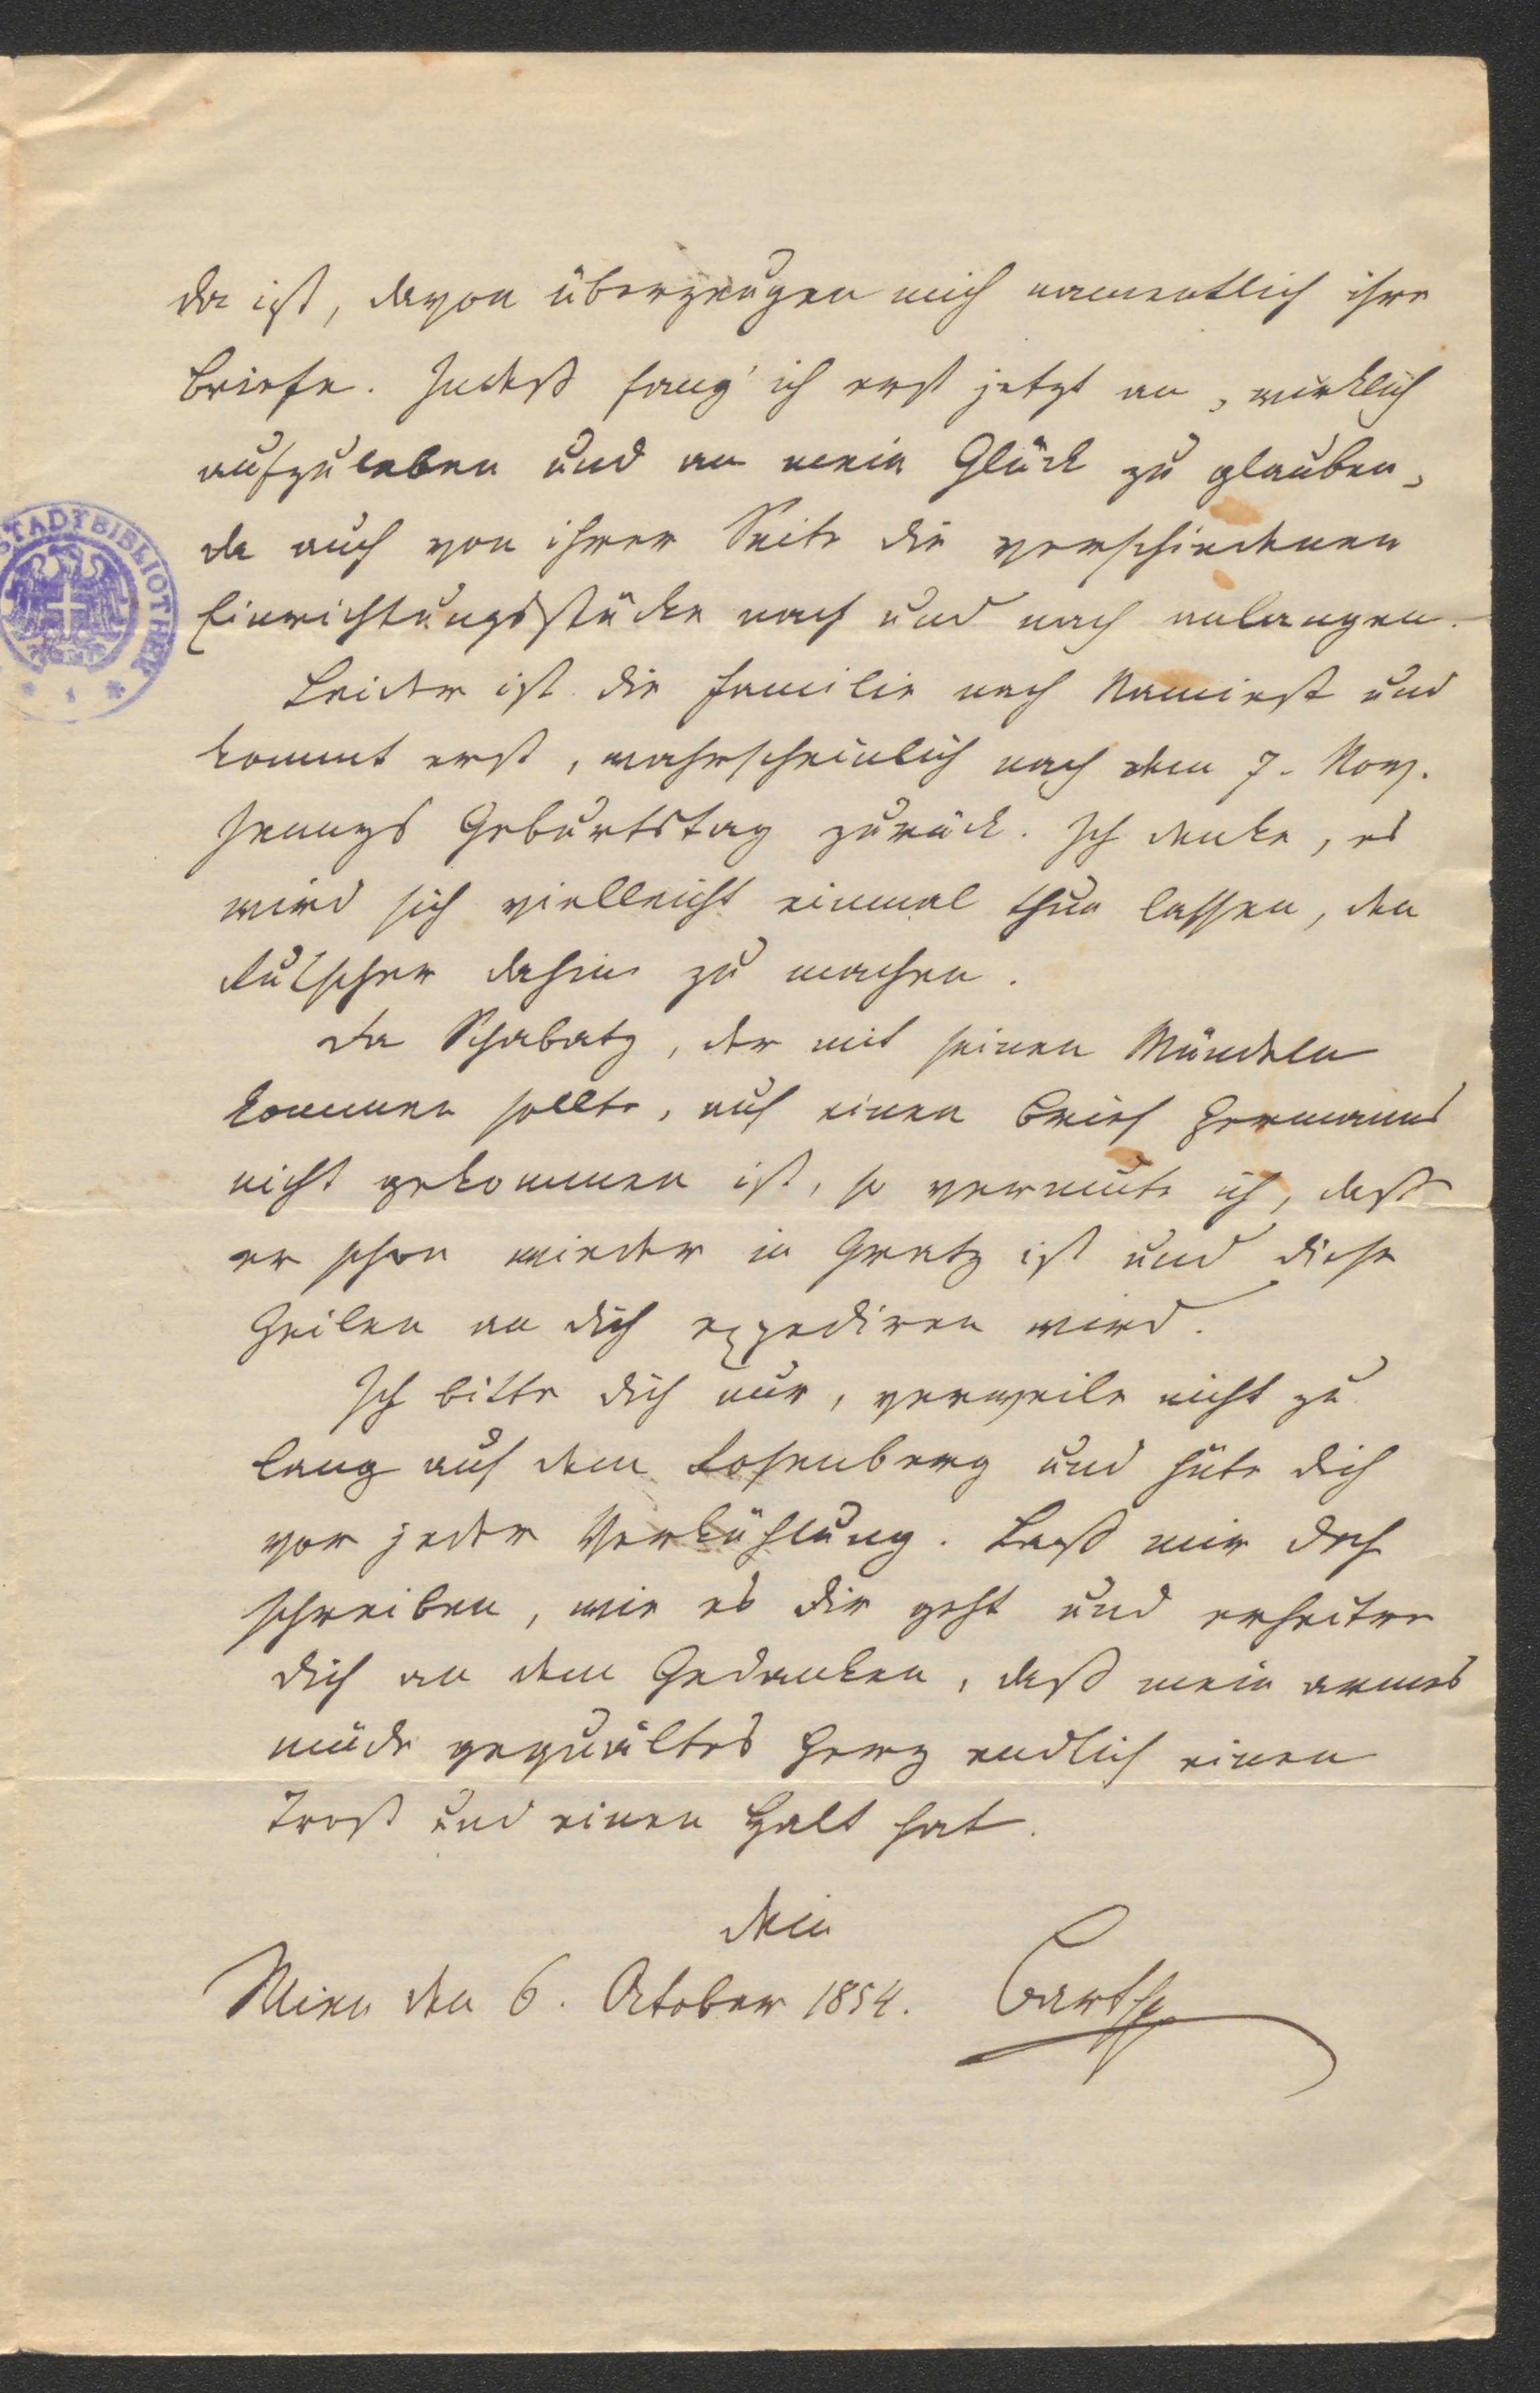 da ist, davon überzeugen mich namentlich ihre
Briefe. Indeß fang' ich erst jetzt an, wirklich
aufzuleben und an mein Glück zu glauben,
da auch von ihrer Seite die verschiednen
Einrichtungsstücke nach und nach anlangen.
Leider ist die Familie nach Namiest und
kommt erst, wahrscheinlich nach dem 7. Nov.
Jennys Geburtstag zurück. Ich denke, es
wird sich vielleicht einmal thun lassen, den
Kutscher dahin zu machen.
Da Schabatz, der mit seinen Mündeln
kommen sollte, auf einen Brief Hermanns
nicht gekommen ist, so vermute ich, daß
er schon wieder in Gratz ist und diese
Zeilen an dich expediren wird.
Ich bitte dich nur, verweile nicht zu
lang auf dem Rosenberg und hüte dich
vor jeder Verkühlung. Laß mir doch
schreiben, wie es dir geht und erheitre
dich an dem Gedanken, daß mein armes
müde gequältes Herz endlich einen
Trost und einen Halt hat.
dein
Wien den 6. October 1854. Bartsch
STADTBIBLIOTHEK
* 1 *